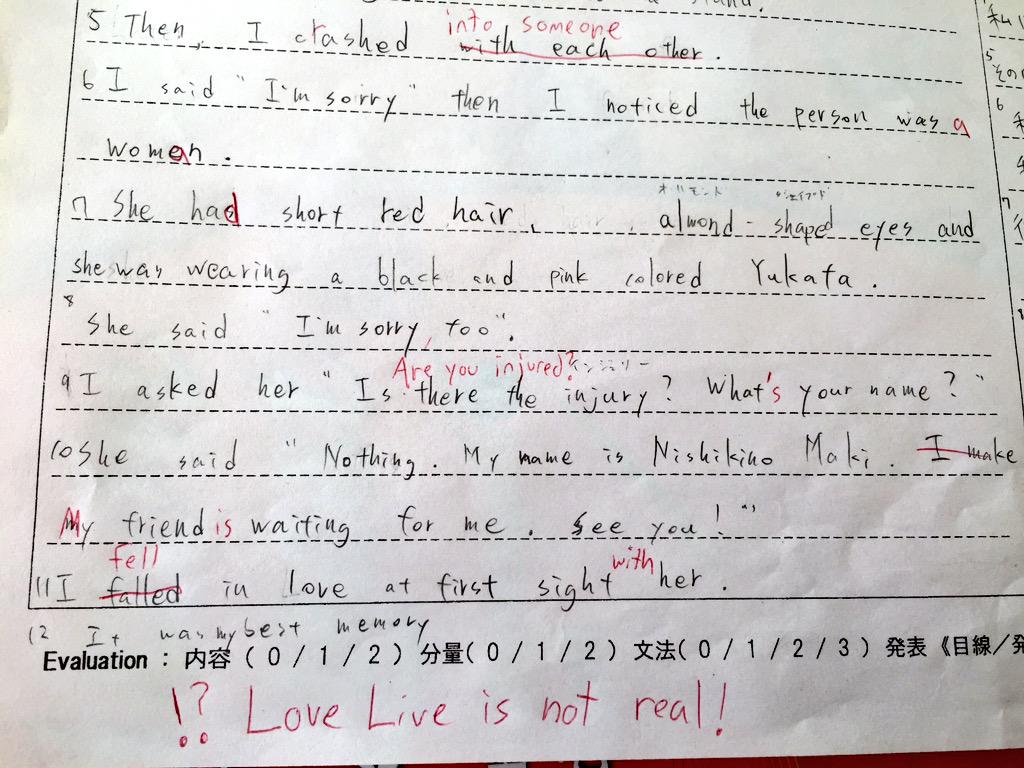 5 Then, I crashed with each other.
into someone
6 I said "I'm sorry" then I noticed the person was a
woman.
7 She had short red hair, almond-shaped eyes and
オリモンド シェイプド
she was wearing a black and pink colored Yukata.
8 She said "I'm sorry, too".
Are you injured? インジュリー
9 I asked her "Is there the injury? What's your name?"
10 She said "Nothing. My name is Nishikino Maki. I make
My friend is waiting for me. See you!"
fell with
11 I falled in Love at first sight her.
12 It was my best memory
Evaluation : 内容 ( 0 / 1 / 2 ) 分量( 0 / 1 / 2 ) 文法( 0 / 1 / 2 / 3 ) 発表《目線/発
!? Love Live is not real!
私
5
その
6
7